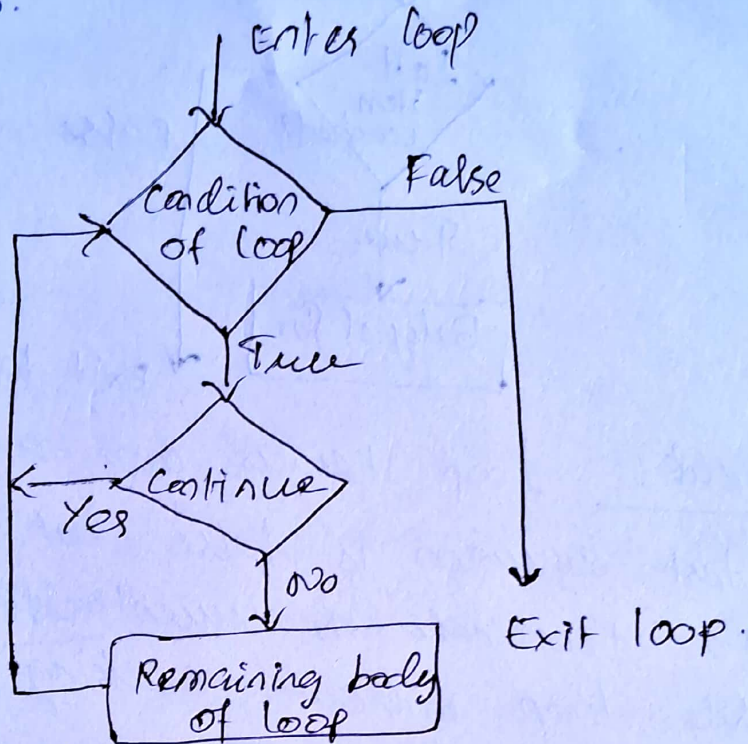 Enter loop
Condition
of loop
False
True
Continue
Yes
No
Exit loop.
Remaining body
of loop